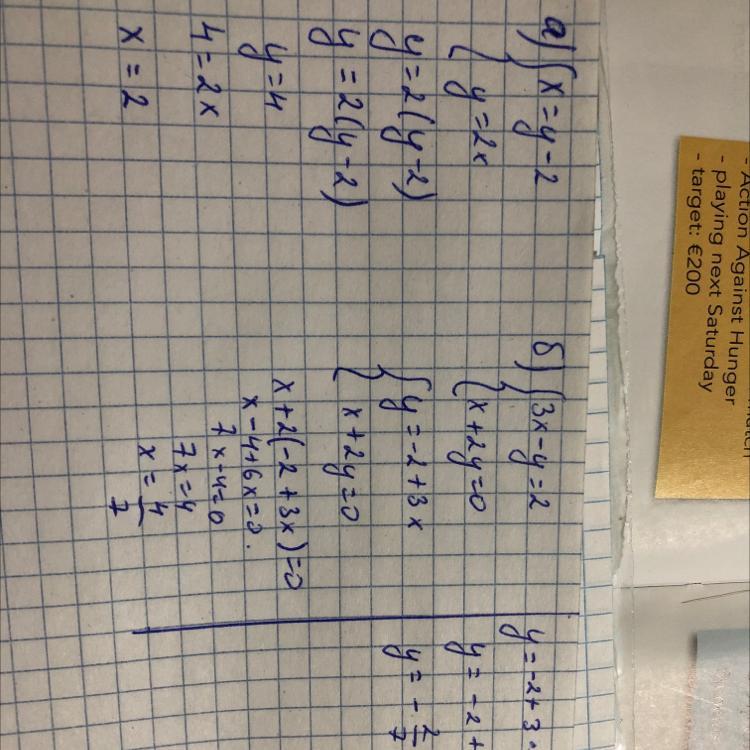 а) { x = y - 2
{ y = 2x
y = 2(y-2)
y = 2(y-2)
y = 4
4 = 2x
x = 2
б) { 3x - y = 2
{ x + 2y = 0
{ y = -2 + 3x
{ x + 2y = 0
x + 2(-2 + 3x) = 0
x - 4 + 6x = 0.
7x - 4 = 0
7x = 4
x = 4/7
y = -2 + 3
y = -2 +
y = - 2/7
- Action Against Hunger
- playing next Saturday
- target: €200